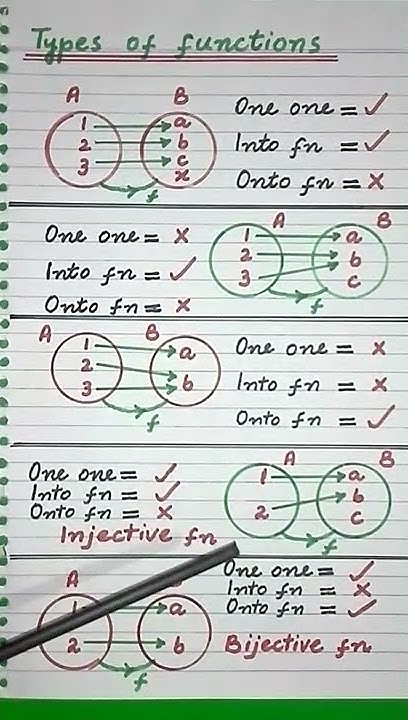 Types of functions
A B
1 a
2 b
3 c
x
f
One one = ✓
Into fn = ✓
Onto fn = ✗
One one = ✗
Into fn = ✓
Onto fn = ✗
A B
1 a
2 b
3 c
f
A B
1 a
2 b
3
f
One one = ✗
Into fn = ✗
Onto fn = ✓
One one = ✓
Into fn = ✓
Onto fn = ✗
Injective fn
A B
1 a
2 b
c
f
A
1 a
2 b
f
One one = ✓
Into fn = ✗
Onto fn = ✓
Bijective fn